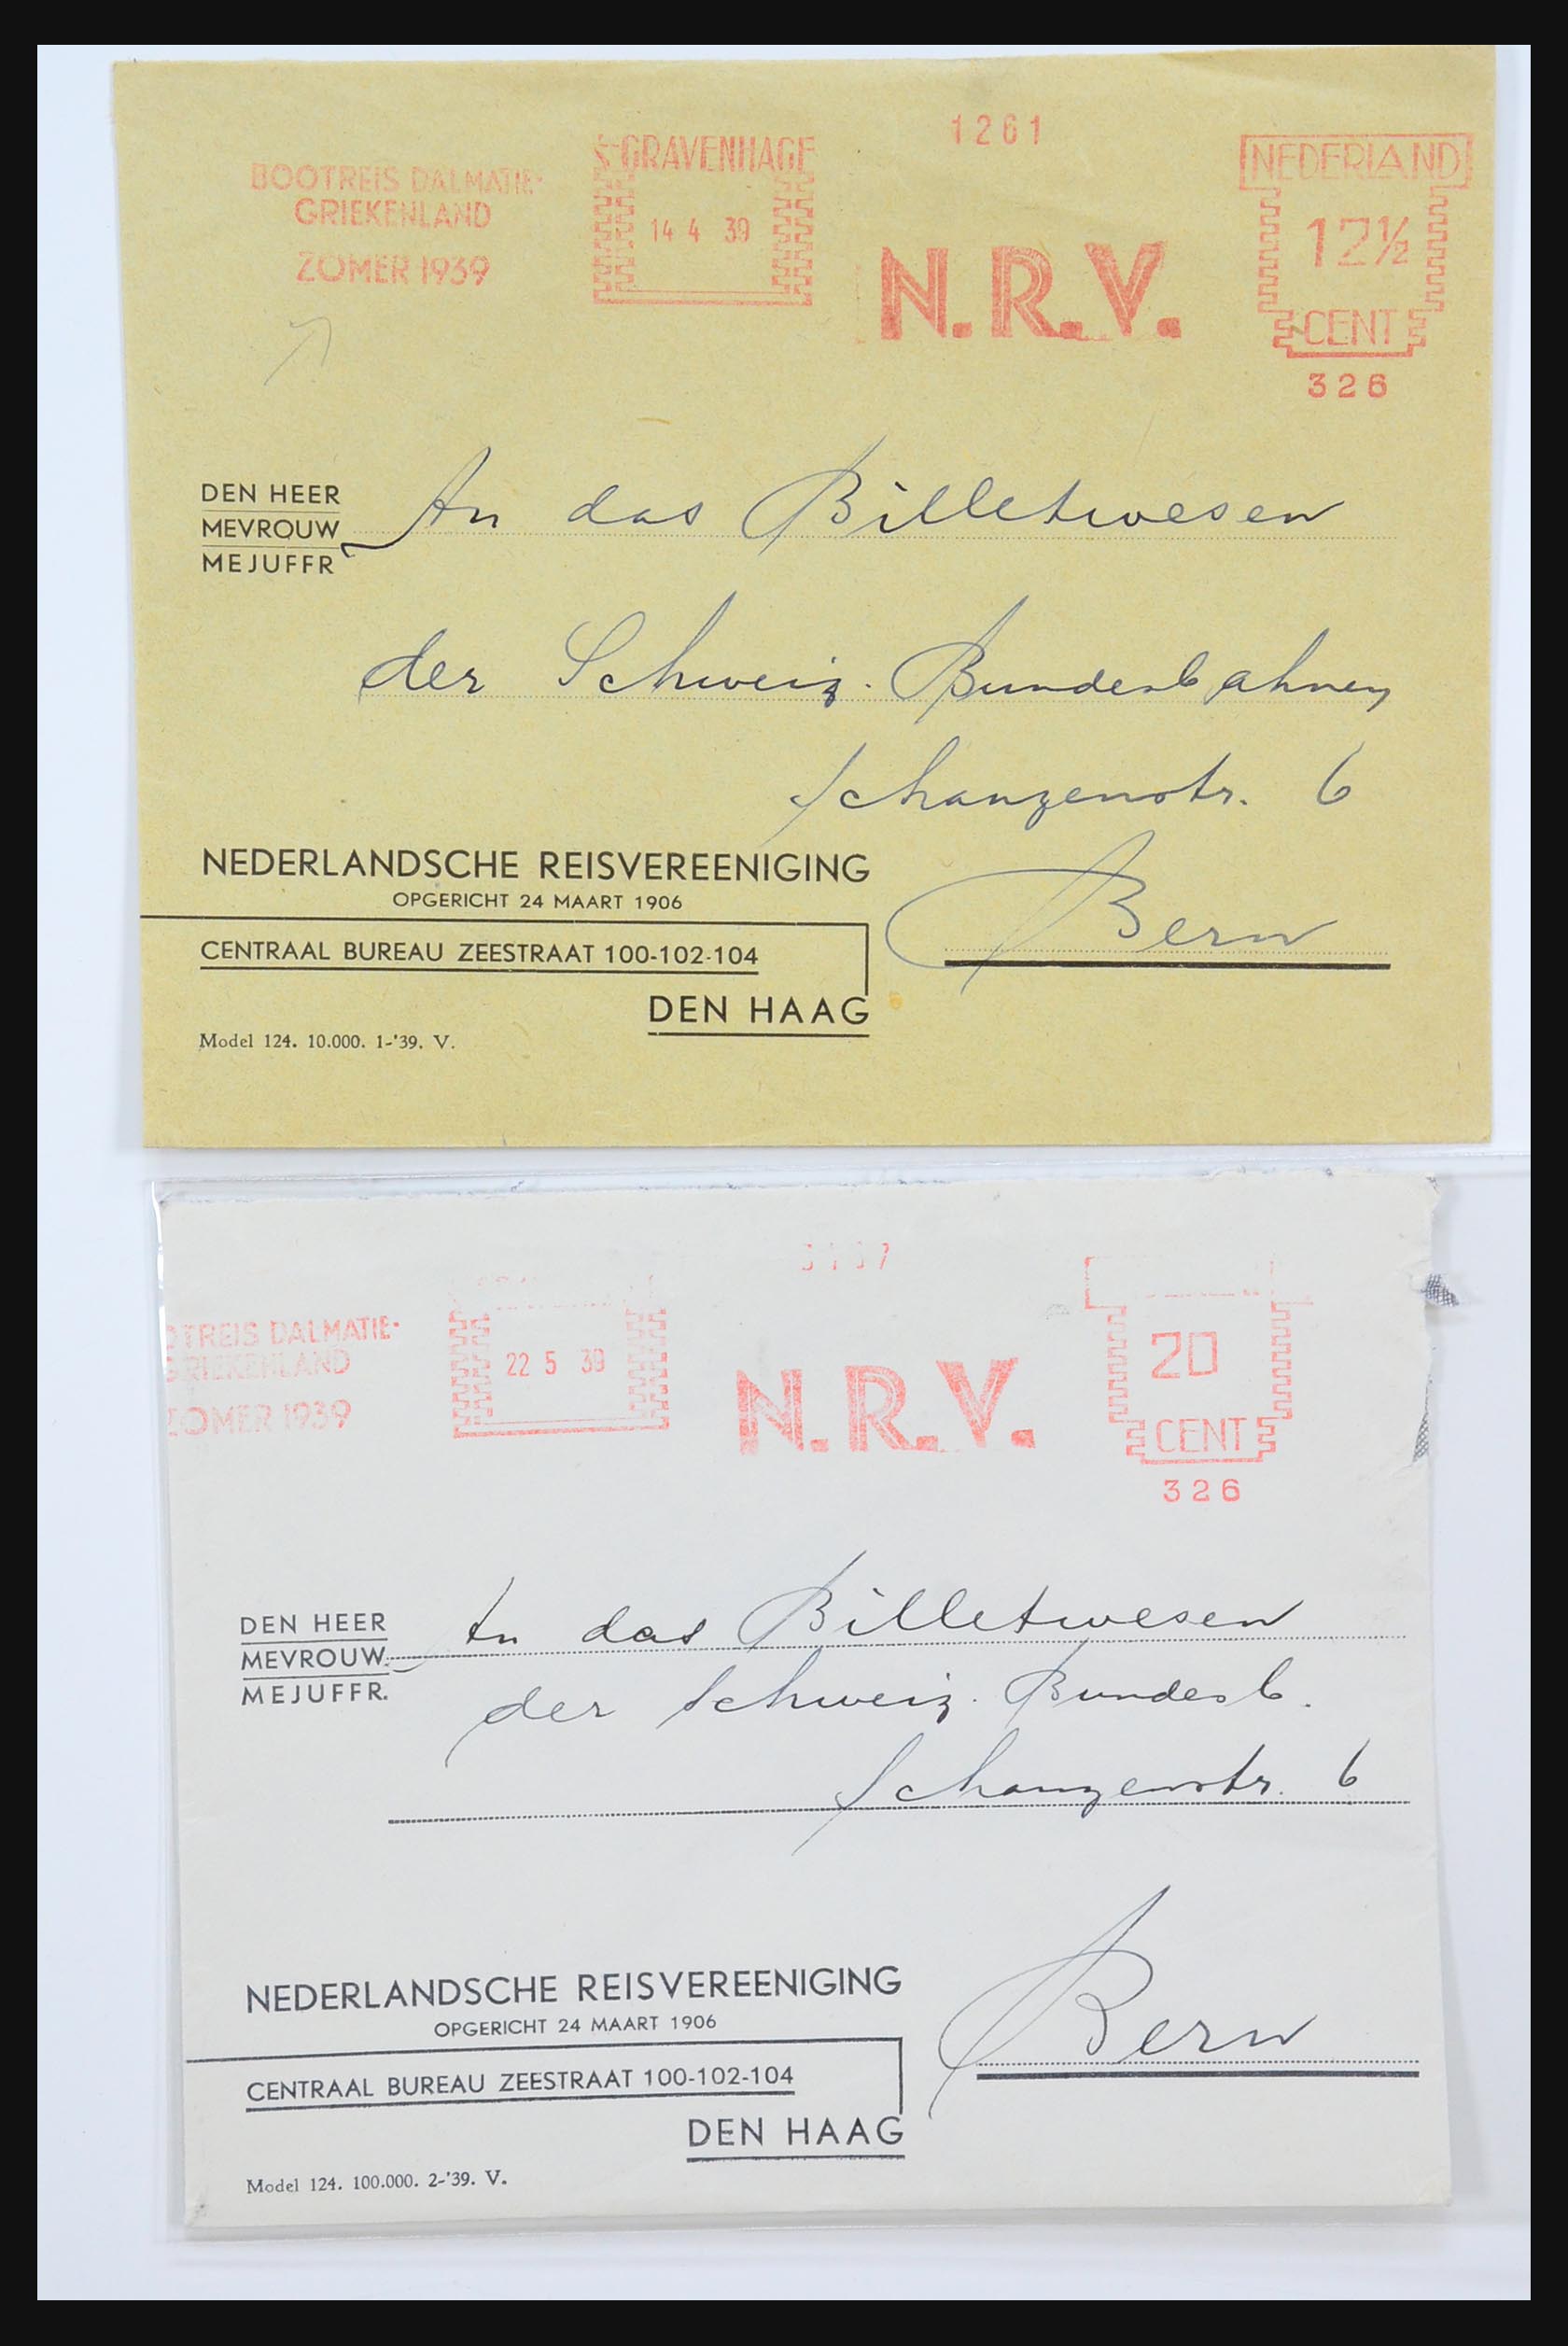 1261
'S-GRAVENHAGE
NEDERLAND
BOOTREIS DALMATIE-
GRIEKENLAND
ZOMER 1939
14 4 39
N.R.V.
12½
CENT
326
DEN HEER
MEVROUW
MEJUFFR
An das Billetwesen
der Schweiz. Bundesbahnen
Schanzenstr. 6
Bern
NEDERLANDSCHE REISVEREENIGING
OPGERICHT 24 MAART 1906
CENTRAAL BUREAU ZEESTRAAT 100-102-104
DEN HAAG
Model 124. 10.000. 1-'39. V.
OTREIS DALMATIE-
GRIEKENLAND
ZOMER 1939
22 5 39
N.R.V.
20
CENT
326
DEN HEER
MEVROUW
MEJUFFR.
An das Billetwesen
der Schweiz. Bundesb.
Schanzenstr. 6
Bern
NEDERLANDSCHE REISVEREENIGING
OPGERICHT 24 MAART 1906
CENTRAAL BUREAU ZEESTRAAT 100-102-104
DEN HAAG
Model 124. 100.000. 2-'39. V.